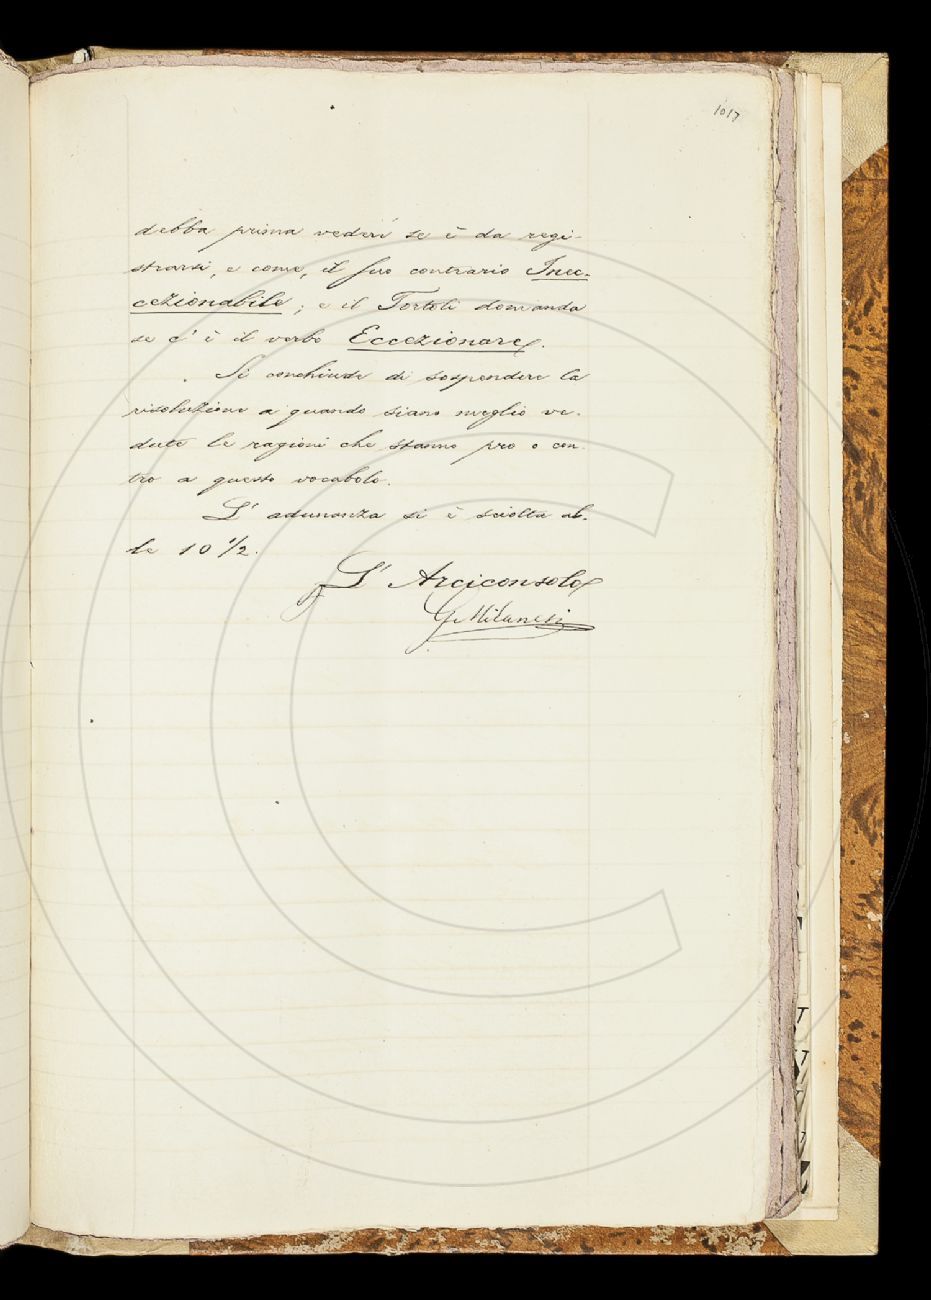 1017
debba prima vedersi se è da regi-
strarsi, e come, il suo contrario Inec-
cezionabile; e il Tortoli domanda
se c'è il verbo Eccezionare.
Si conchiude di sospendere la
risoluzione a quando siano meglio ve-
dute le ragioni che stanno pro o con-
tro a questo vocabolo.
L'adunanza si è sciolta al-
le 10 1/2.
L'Arciconsolo
G. Milanesi